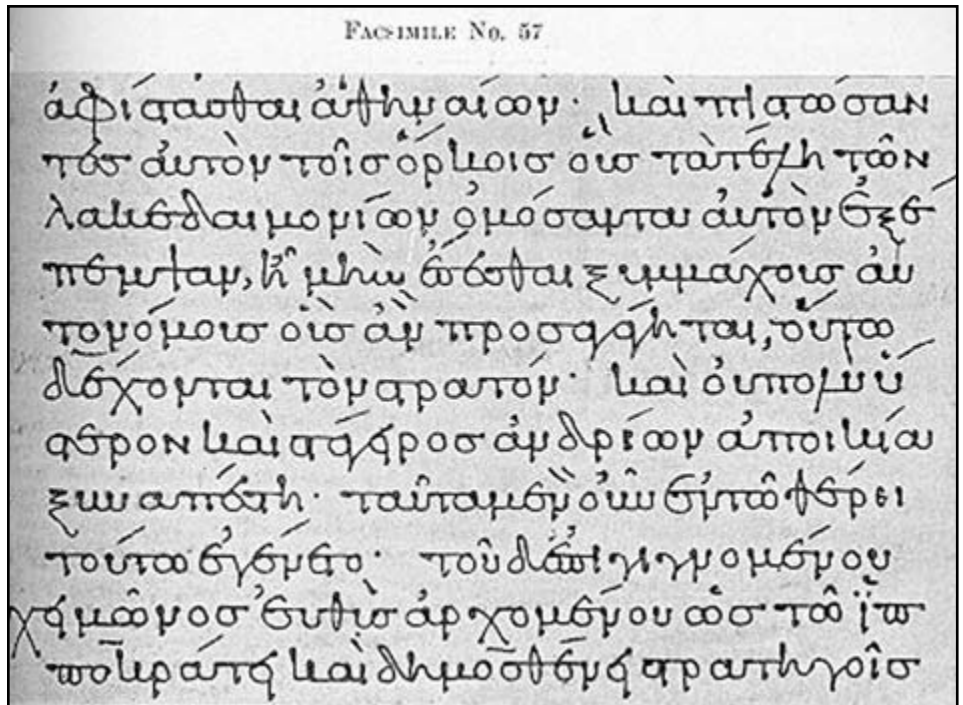 FACSIMILE No. 57
ἀφίστασθαι ἀθηναίων· καὶ πιστώσαν
τες αὐτὸν τοῖς ὅρκοις οὓς τὰ τέλη τῶν
λακεδαιμονίων ὀμόσαντα αὐτὸν ἐξέ
πεμψαν, ἦ μὴν ἔσεσθαι ξυμμάχους αὐ
τονόμους οὓς ἂν προσαγάγηται, οὕτω
δέχονται τὸν στρατόν· καὶ οὐ πολὺ ὕ
στερον καὶ στάγειρος ἀνδρίων ἀποικία
ξυναπέστη· ταῦτα μὲν οὖν ἐν τῶ θέρει
τούτω ἐγένετο· τοῦ δ᾽ ἐπιγιγνομένου
χειμῶνος εὐθὺς ἀρχομένου ὡς τῶ ἱπ
ποκράτει καὶ δημοσθένει στρατηγοῖς